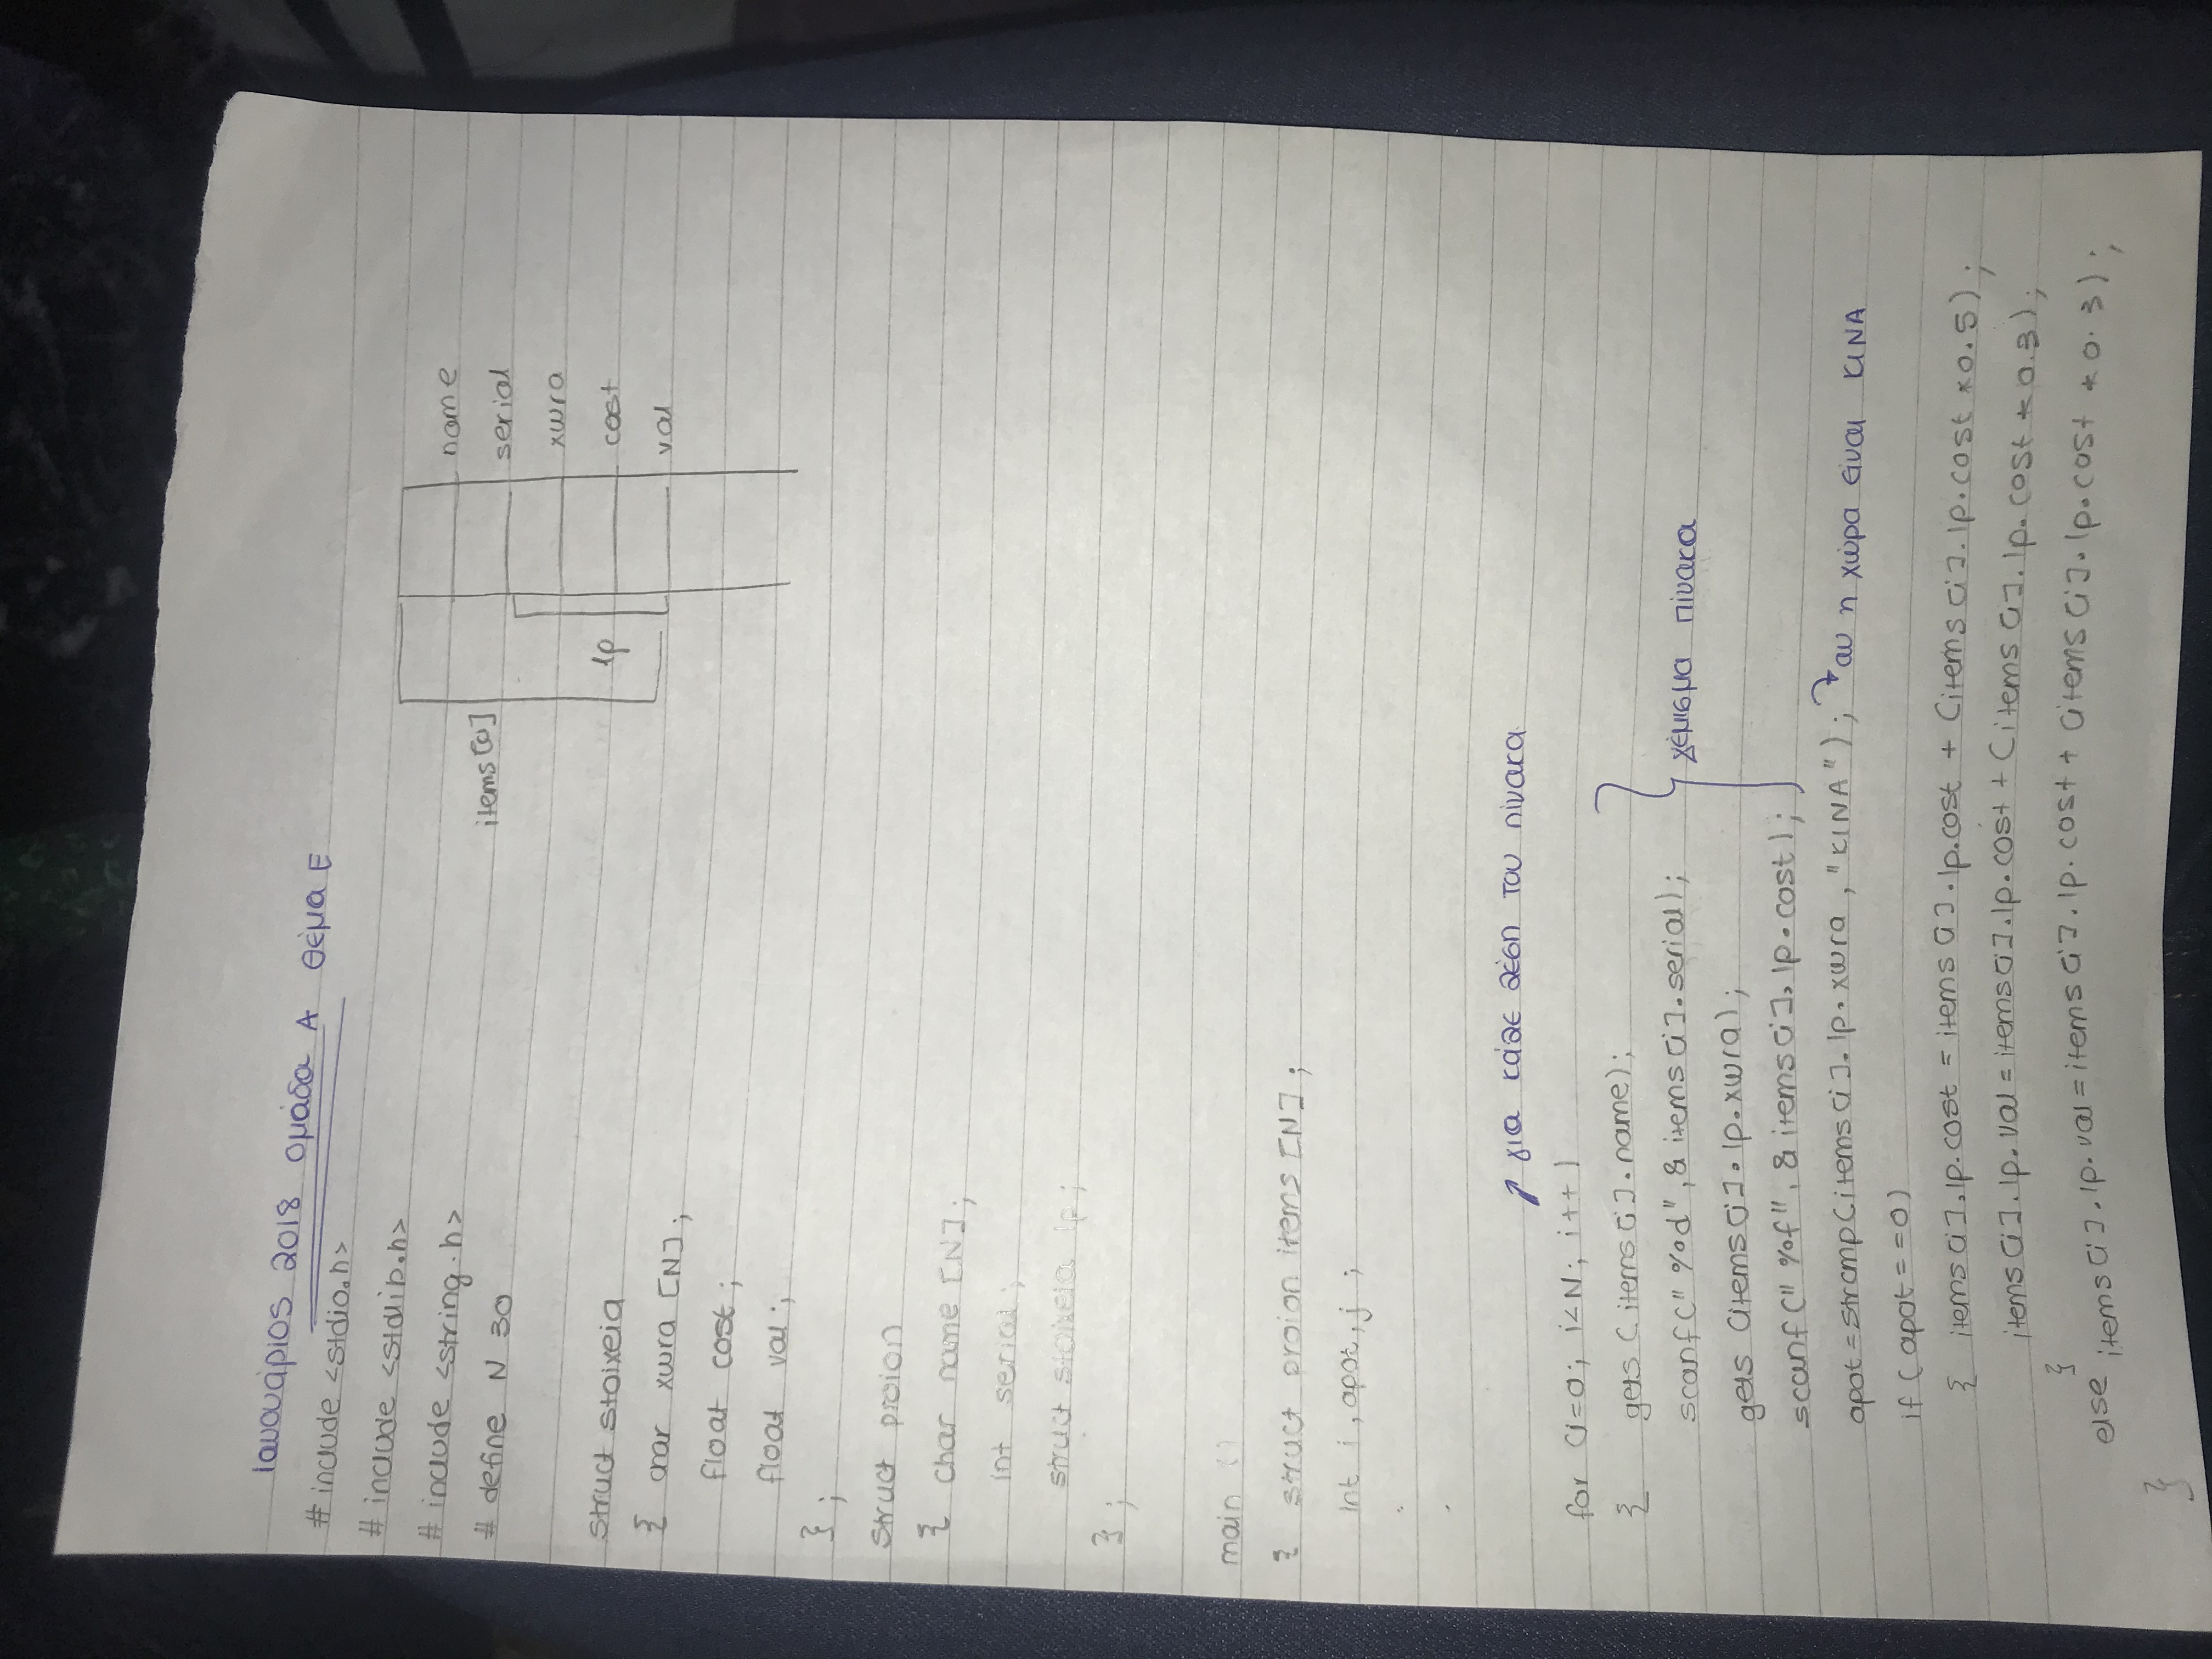 Ιανουάριος 2018 ομάδα Α θέμα Ε
# include <stdio.h>
# include <stdlib.h>
# include <string.h>
# define N 30
struct stoixeia
{ char xwra [N];
float cost;
float val;
};
struct proion
{ char name [N];
int serial;
struct stoixeia lp;
};
items[0]
lp
name
serial
xwra
cost
val
main ()
{ struct proion items [N];
int i, apot, j ;
.
.
για κάθε θέση του πίνακα
for (i=0; i<N; i++)
{ gets (items[i].name);
scanf("%d", & items[i].serial);
gets (items[i].lp.xwra);
scanf("%f", & items[i].lp.cost);
γέμισμα πίνακα
apot = strcmp(items[i].lp.xwra, "KINA"); αν η χώρα είναι ΚΙΝΑ
if (apot==0)
{ items[i].lp.cost = items[i].lp.cost + (items[i].lp.cost *0.5);
items[i].lp.val = items[i].lp.cost + (items[i].lp.cost * 0.3);
}
else items[i].lp.val = items[i].lp.cost + (items[i].lp.cost * 0.3);
}